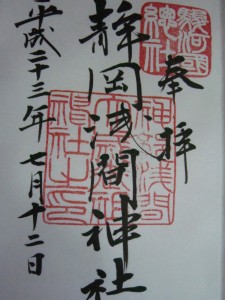 駿河國
總社
奉拝
静岡浅間神社
平成二十三年七月十二日